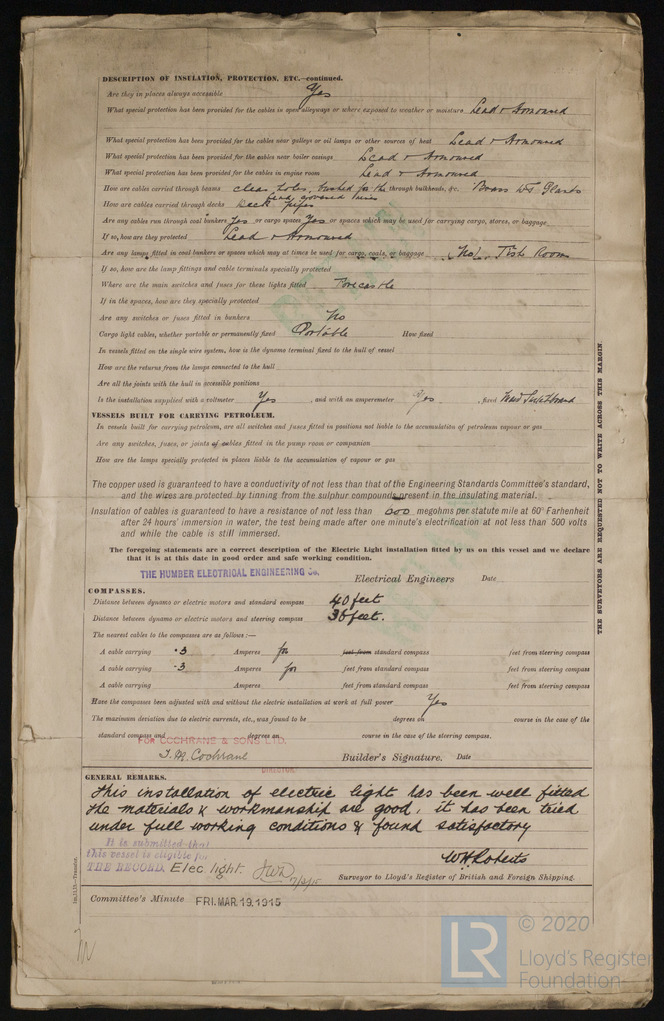 DESCRIPTION OF INSULATION, PROTECTION, ETC.—continued.
Are they in places always accessible Yes
What special protection has been provided for the cables in open alleyways or where exposed to weather or moisture Lead & Armoured
What special protection has been provided for the cables near galleys or oil lamps or other sources of heat Lead & Armoured
What special protection has been provided for the cables near boiler casings Lead & Armoured
What special protection has been provided for the cables in engine room Lead & Armoured
How are cables carried through beams clear holes, bushed for the through bulkheads, &c. Brass W.T. Glands
lead covered
How are cables carried through decks Deck pipes
Are any cables run through coal bunkers Yes or cargo spaces Yes or spaces which may be used for carrying cargo, stores, or baggage
If so, how are they protected Lead & Armoured
Are any lamps fitted in coal bunkers or spaces which may at times be used for cargo, coals, or baggage Fish Room
If so, how are the lamp fittings and cable terminals specially protected
Where are the main switches and fuses for these lights fitted Forecastle
If in the spaces, how are they specially protected
Are any switches or fuses fitted in bunkers No
Cargo light cables, whether portable or permanently fixed Portable How fixed
In vessels fitted on the single wire system, how is the dynamo terminal fixed to the hull of vessel
How are the returns from the lamps connected to the hull
Are all the joints with the hull in accessible positions
Is the installation supplied with a voltmeter Yes , and with an amperemeter Yes , fixed
VESSELS BUILT FOR CARRYING PETROLEUM.
In vessels built for carrying petroleum, are all switches and fuses fitted in positions not liable to the accumulation of petroleum vapour or gas
Are any switches, fuses, or joints of cables fitted in the pump room or companion
How are the lamps specially protected in places liable to the accumulation of vapour or gas
The copper used is guaranteed to have a conductivity of not less than that of the Engineering Standards Committee's standard,
and the wires are protected by tinning from the sulphur compounds present in the insulating material.
Insulation of cables is guaranteed to have a resistance of not less than 600 megohms per statute mile at 60° Farhenheit
after 24 hours' immersion in water, the test being made after one minute's electrification at not less than 500 volts
and while the cable is still immersed.
The foregoing statements are a correct description of the Electric Light installation fitted by us on this vessel and we declare
that it is at this date in good order and safe working condition.
THE HUMBER ELECTRICAL ENGINEERING Co. Electrical Engineers Date
COMPASSES.
Distance between dynamo or electric motors and standard compass 40 feet
Distance between dynamo or electric motors and steering compass 36 feet.
The nearest cables to the compasses are as follows:—
A cable carrying .3 Amperes for feet from standard compass feet from steering compass
A cable carrying .3 Amperes for feet from standard compass feet from steering compass
A cable carrying Amperes feet from standard compass feet from steering compass
Have the compasses been adjusted with and without the electric installation at work at full power Yes
The maximum deviation due to electric currents, etc., was found to be degrees on course in the case of the
standard compass and degrees on course in the case of the steering compass.
FOR COCHRANE & SONS LTD.
J. M. Cochrane Builder's Signature. Date
DIRECTOR
GENERAL REMARKS.
This installation of electric light has been well fitted
the materials & workmanship are good, it has been tried
under full working conditions & found satisfactory
It is submitted that
this vessel is eligible for
THE RECORD. Elec. light. JWD 7/3/15
W H Roberts
Surveyor to Lloyd's Register of British and Foreign Shipping.
Committee's Minute FRI. MAR. 19. 1915
THE SURVEYORS ARE REQUESTED NOT TO WRITE ACROSS THIS MARGIN
© 2020
LR
Lloyd's Register
Foundation